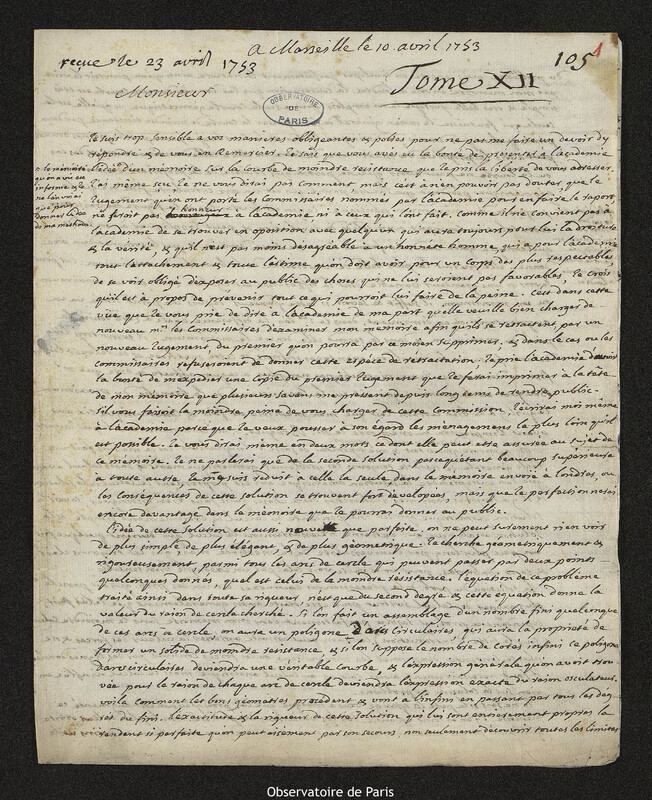 a Marseille le 10 avril 1753
reçue le 23 avril 1753
105
Tome XII
Monsieur
OBSERVATOIRE DE PARIS
Je suis trop sensible a vos manieres obligeantes & polies pour ne pas me faire un devoir dy
répondre & de vous en Remercier. Je sais que vous avés eu la bonté de presenter a lacademie
lidée d'un mémoire sur la courbe de moindre resistance que je pris la liberté de vous adresser.
J'ai même sçu, je ne vous dirai pas comment mais cest a nen pouvoir pas douter, que le
Jugement quen ont porté les commissaires nommés par lacademie pour en faire le raport,
ne feroit pas honneur a lacademie ni a ceux qui lont fait. comme il ne convient pas a
lacademie de se trouver en oposition avec quelqun qui aura toujours pour lui la droiture
& la verité & quil n'est pas moins desagréable a un honnête homme, qui a pour lacademie
tout lattachement & toute lestime quon doit avoir pour un corps des plus respectables,
de se voir obligé dexposer au public des choses qui ne lui seroient pas favorables, Je crois
quil est à propos de prevenir tout ce qui pourroit lui faire de la peine. cest dans cette
vüe que Je vous prie de dire a lacademie de ma part quelle veuille bien charger de
nouveau mrs les commissaires dexaminer mon mémoire afin quils se retractent, par un
nouveau Jugement, du premier quon pourra par ce moyen supprimer, & dans le cas ou les
commissaires refuseroient de donner cette espece de retractation, Je prie lacademie davoir
la bonté de mexpedier une copie du premier Jugement que Je ferai imprimer a la tete
de mon mémoire que plusieurs savans me pressent depuis long tems de rendre public.
sil vous faisoit la moindre peine de vous charger de cette commission, J'ecrirai moi même
à lacademie parce que Je veux pousser a son egard les ménagemens le plus loin quil
est possible. Je vous dirai même en deux mots ce dont elle peut etre assurée au sujet de
ce mémoire. Je ne parlerai que de la seconde solution parcequetant beaucoup superieure
a toute autre, Je me suis reduit a celle la seule dans le mémoire envoié à londres, ou
les consequences de cette solution se trouvent fort developées, mais que je perfectionnerai
encore davantage dans le mémoire que Je pourrai donner au public.
lidée de cette solution est aussi nouvelle que parfaite, on ne peut surement rien voir
de plus simple, de plus élégant, & de plus géometrique. Je cherche géometriquement &
rigoureusement, parmi tous les arcs de cercle qui peuvent passer par deux points
quelconques donnés, quel est celui de la moindre résistance. léquation de ce problème
traité ainsi dans toute sa rigueur, nest que du second degré & cette équation donne la
valeur du raïon de cercle cherché. si lon fait un assemblage d'un nombre fini quelconque
de ces arcs de cercle, on aura un poligone d'arcs circulaires, qui aura la proprieté de
former un solide de moindre resistance, & si lon suppose le nombre de cotés infini ce poligone
d'arcs circulaires deviendra une veritable courbe, & lexpression générale quon avoit trou-
vée pour le raïon de chaque arc de cercle deviendra lexpression exacte du raïon osculateur.
voila comment les bons géometres procedent & vont à linfini en passant par tous les deg-
rés du fini. lexactitude & la rigueur de cette solution qui lui sont entierement propres la
rendent si parfaite quon peut aisement par son secours, non seulement decouvrir toutes les limites
Observatoire de Paris